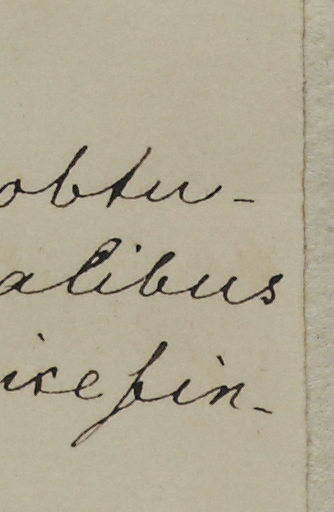 obtu-
alibus
ice fin-